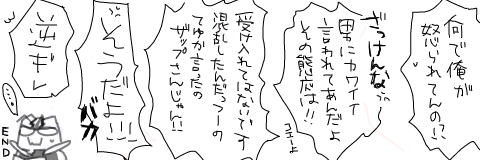 何で俺が
怒られてんの!?
ざっけんなぅぅ
男にカワイイ
言われてあんだよ
その態度は!!
コエーよ
受け入れてはないです
混乱したんだっつーの
てゆか言ったの
ザップさんじゃん!!
そうだよ!!!
バカ
逆ギレ
END